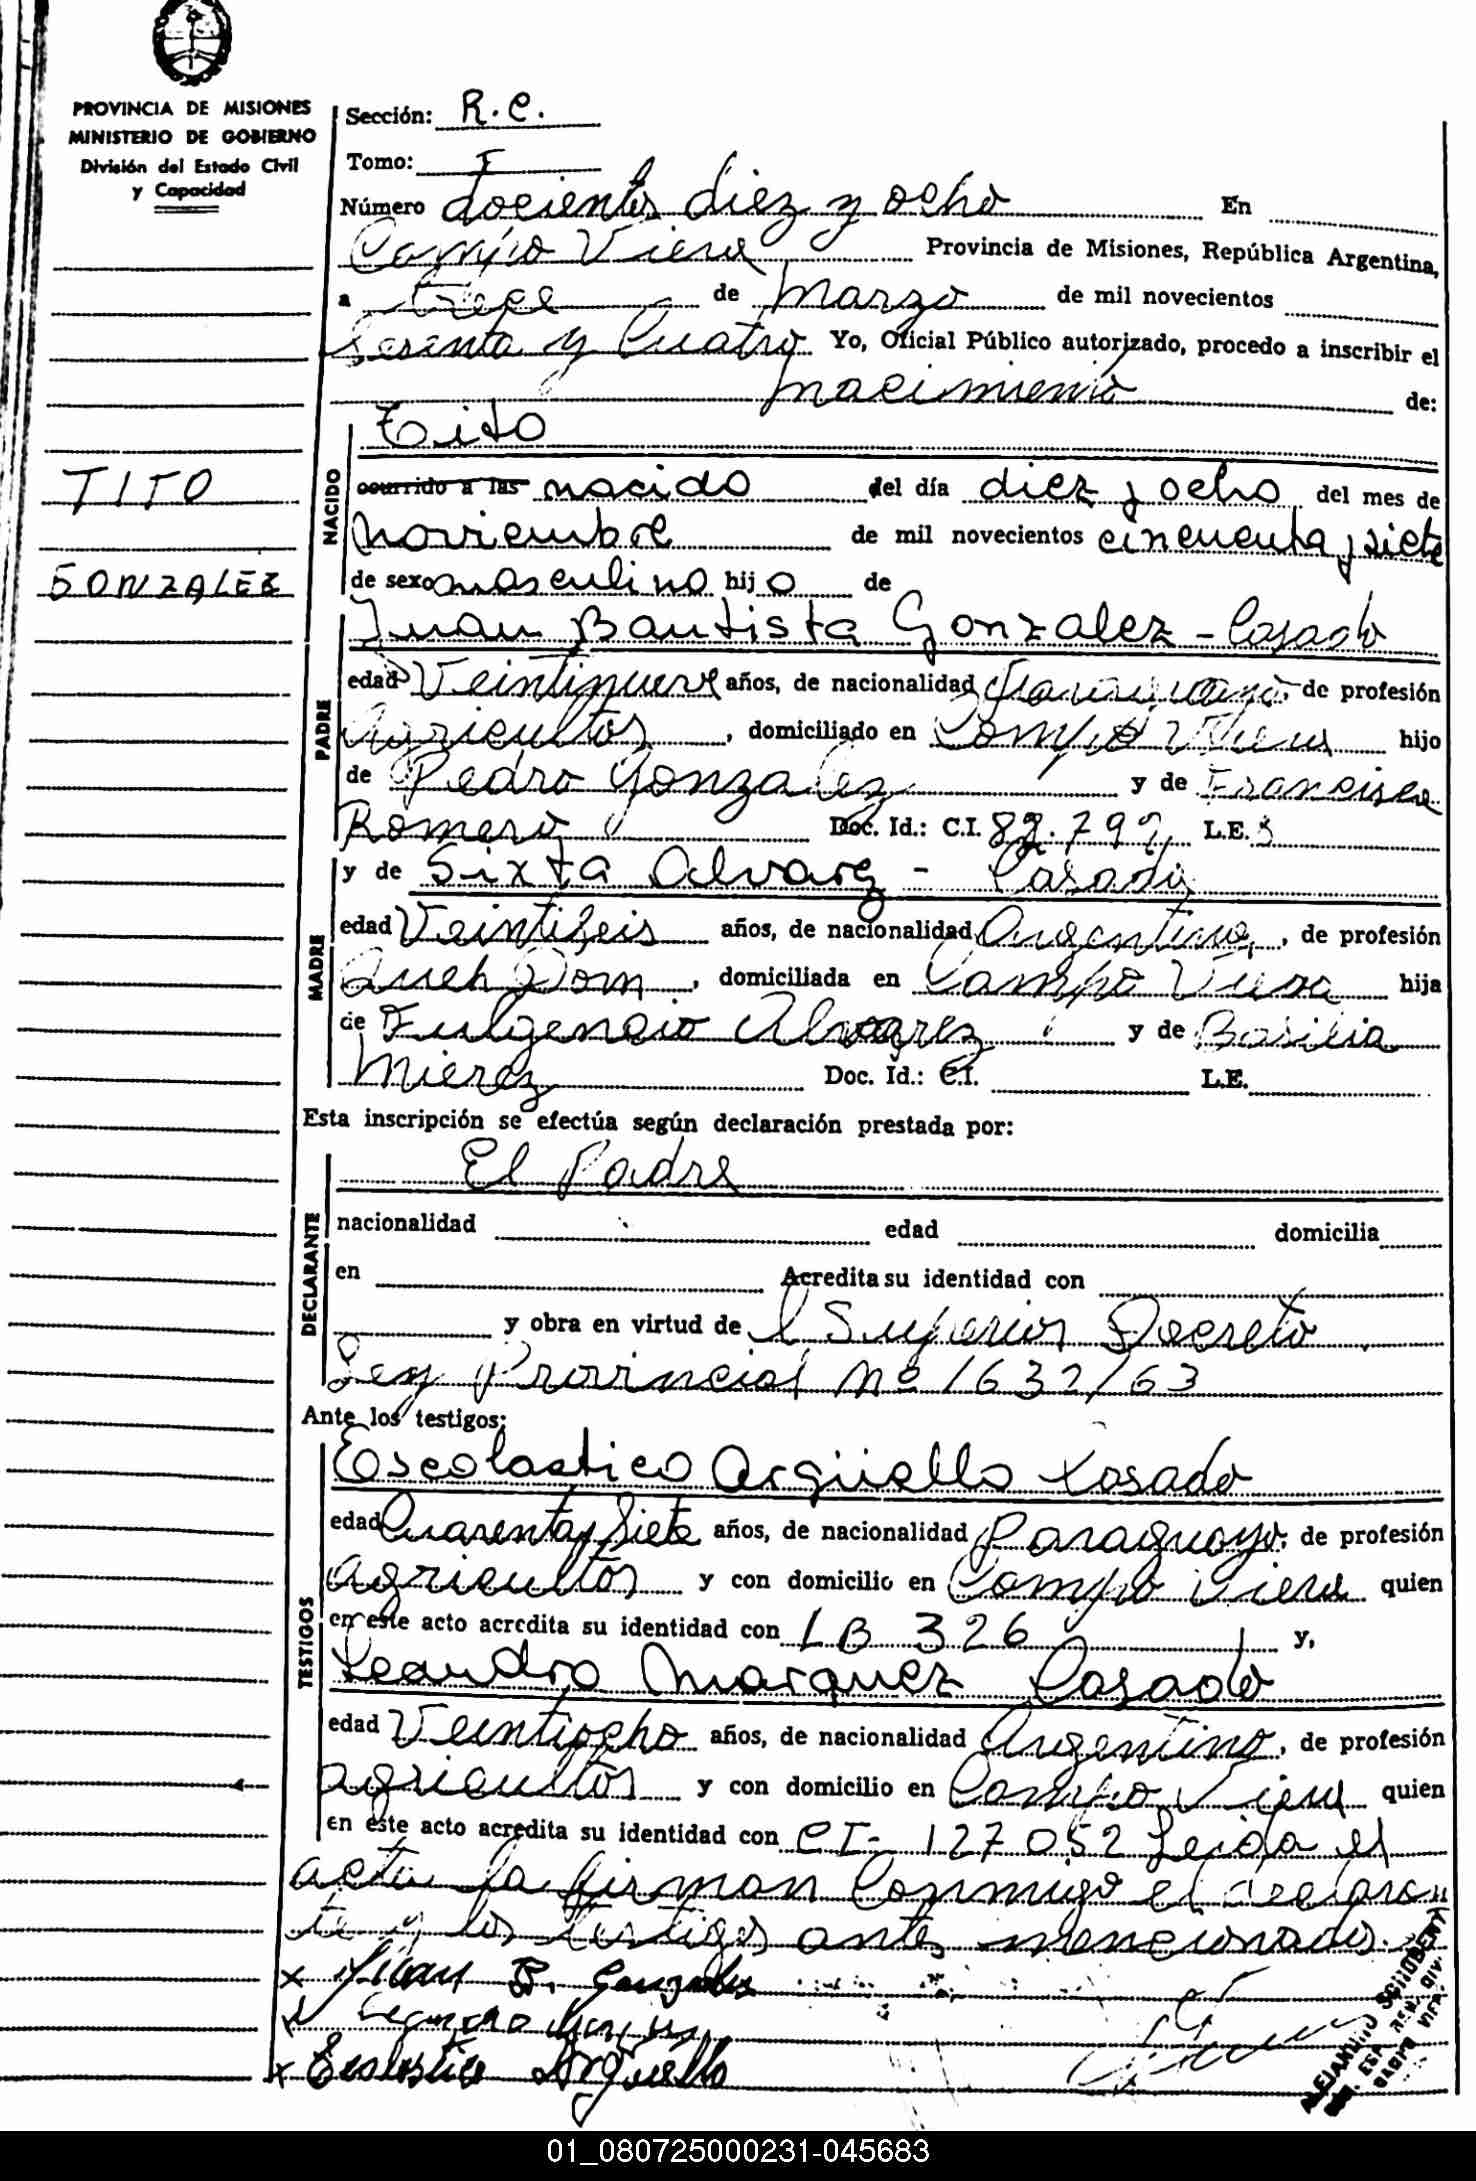 PROVINCIA DE MISIONES
MINISTERIO DE GOBIERNO
División del Estado Civil
y Capacidad
TITO
GONZALEZ
Sección: R.C.
Tomo: I
Número docientos diez y ocho En
Campo Viera Provincia de Misiones, República Argentina,
a trece de Marzo de mil novecientos
Sesenta y Cuatro Yo, Oficial Público autorizado, procedo a inscribir el
nacimiento de:
NACIDO
Tito
ocurrido a las nacido del día diez y ocho del mes de
Noviembre de mil novecientos cincuenta y siete
de sexo masculino hijo de
PADRE
Juan Bautista Gonzalez - Casado
edad Veintinueve años, de nacionalidad de profesión
Agricultor, domiciliado en Campo Viera hijo
de Pedro Gonzalez y de Francisca
Romero Doc. Id.: C.I. L.E.
MADRE
y de Sixta Alvarez - Casada
edad Veintiseis años, de nacionalidad Argentina, de profesión
Queh Dom, domiciliada en Campo Viera hija
de Fulgencio Alvarez y de Basilia
Mierez Doc. Id.: C.I. L.E.
Esta inscripción se efectúa según declaración prestada por:
DECLARANTE
El Padre
nacionalidad edad domicilia
en Acredita su identidad con
y obra en virtud del Superior Decreto
Ley Provincial Nº 1632/63
Ante los testigos:
TESTIGOS
Escolastico Argüello Casado
edad Cuarenta y Siete años, de nacionalidad Paraguayo, de profesión
agricultor y con domicilio en Campo Viera quien
en este acto acredita su identidad con LB 326 y,
Leandro Marquez Casado
edad Veintiocho años, de nacionalidad Argentino, de profesión
agricultor y con domicilio en Campo Viera quien
en este acto acredita su identidad con CI- 127052 Leida el
acta la firman Conmigo el declaran
te y los testigos antes mencionados.
x Juan B. Gonzalez
x Escolastico Argüello
01_080725000231-045683